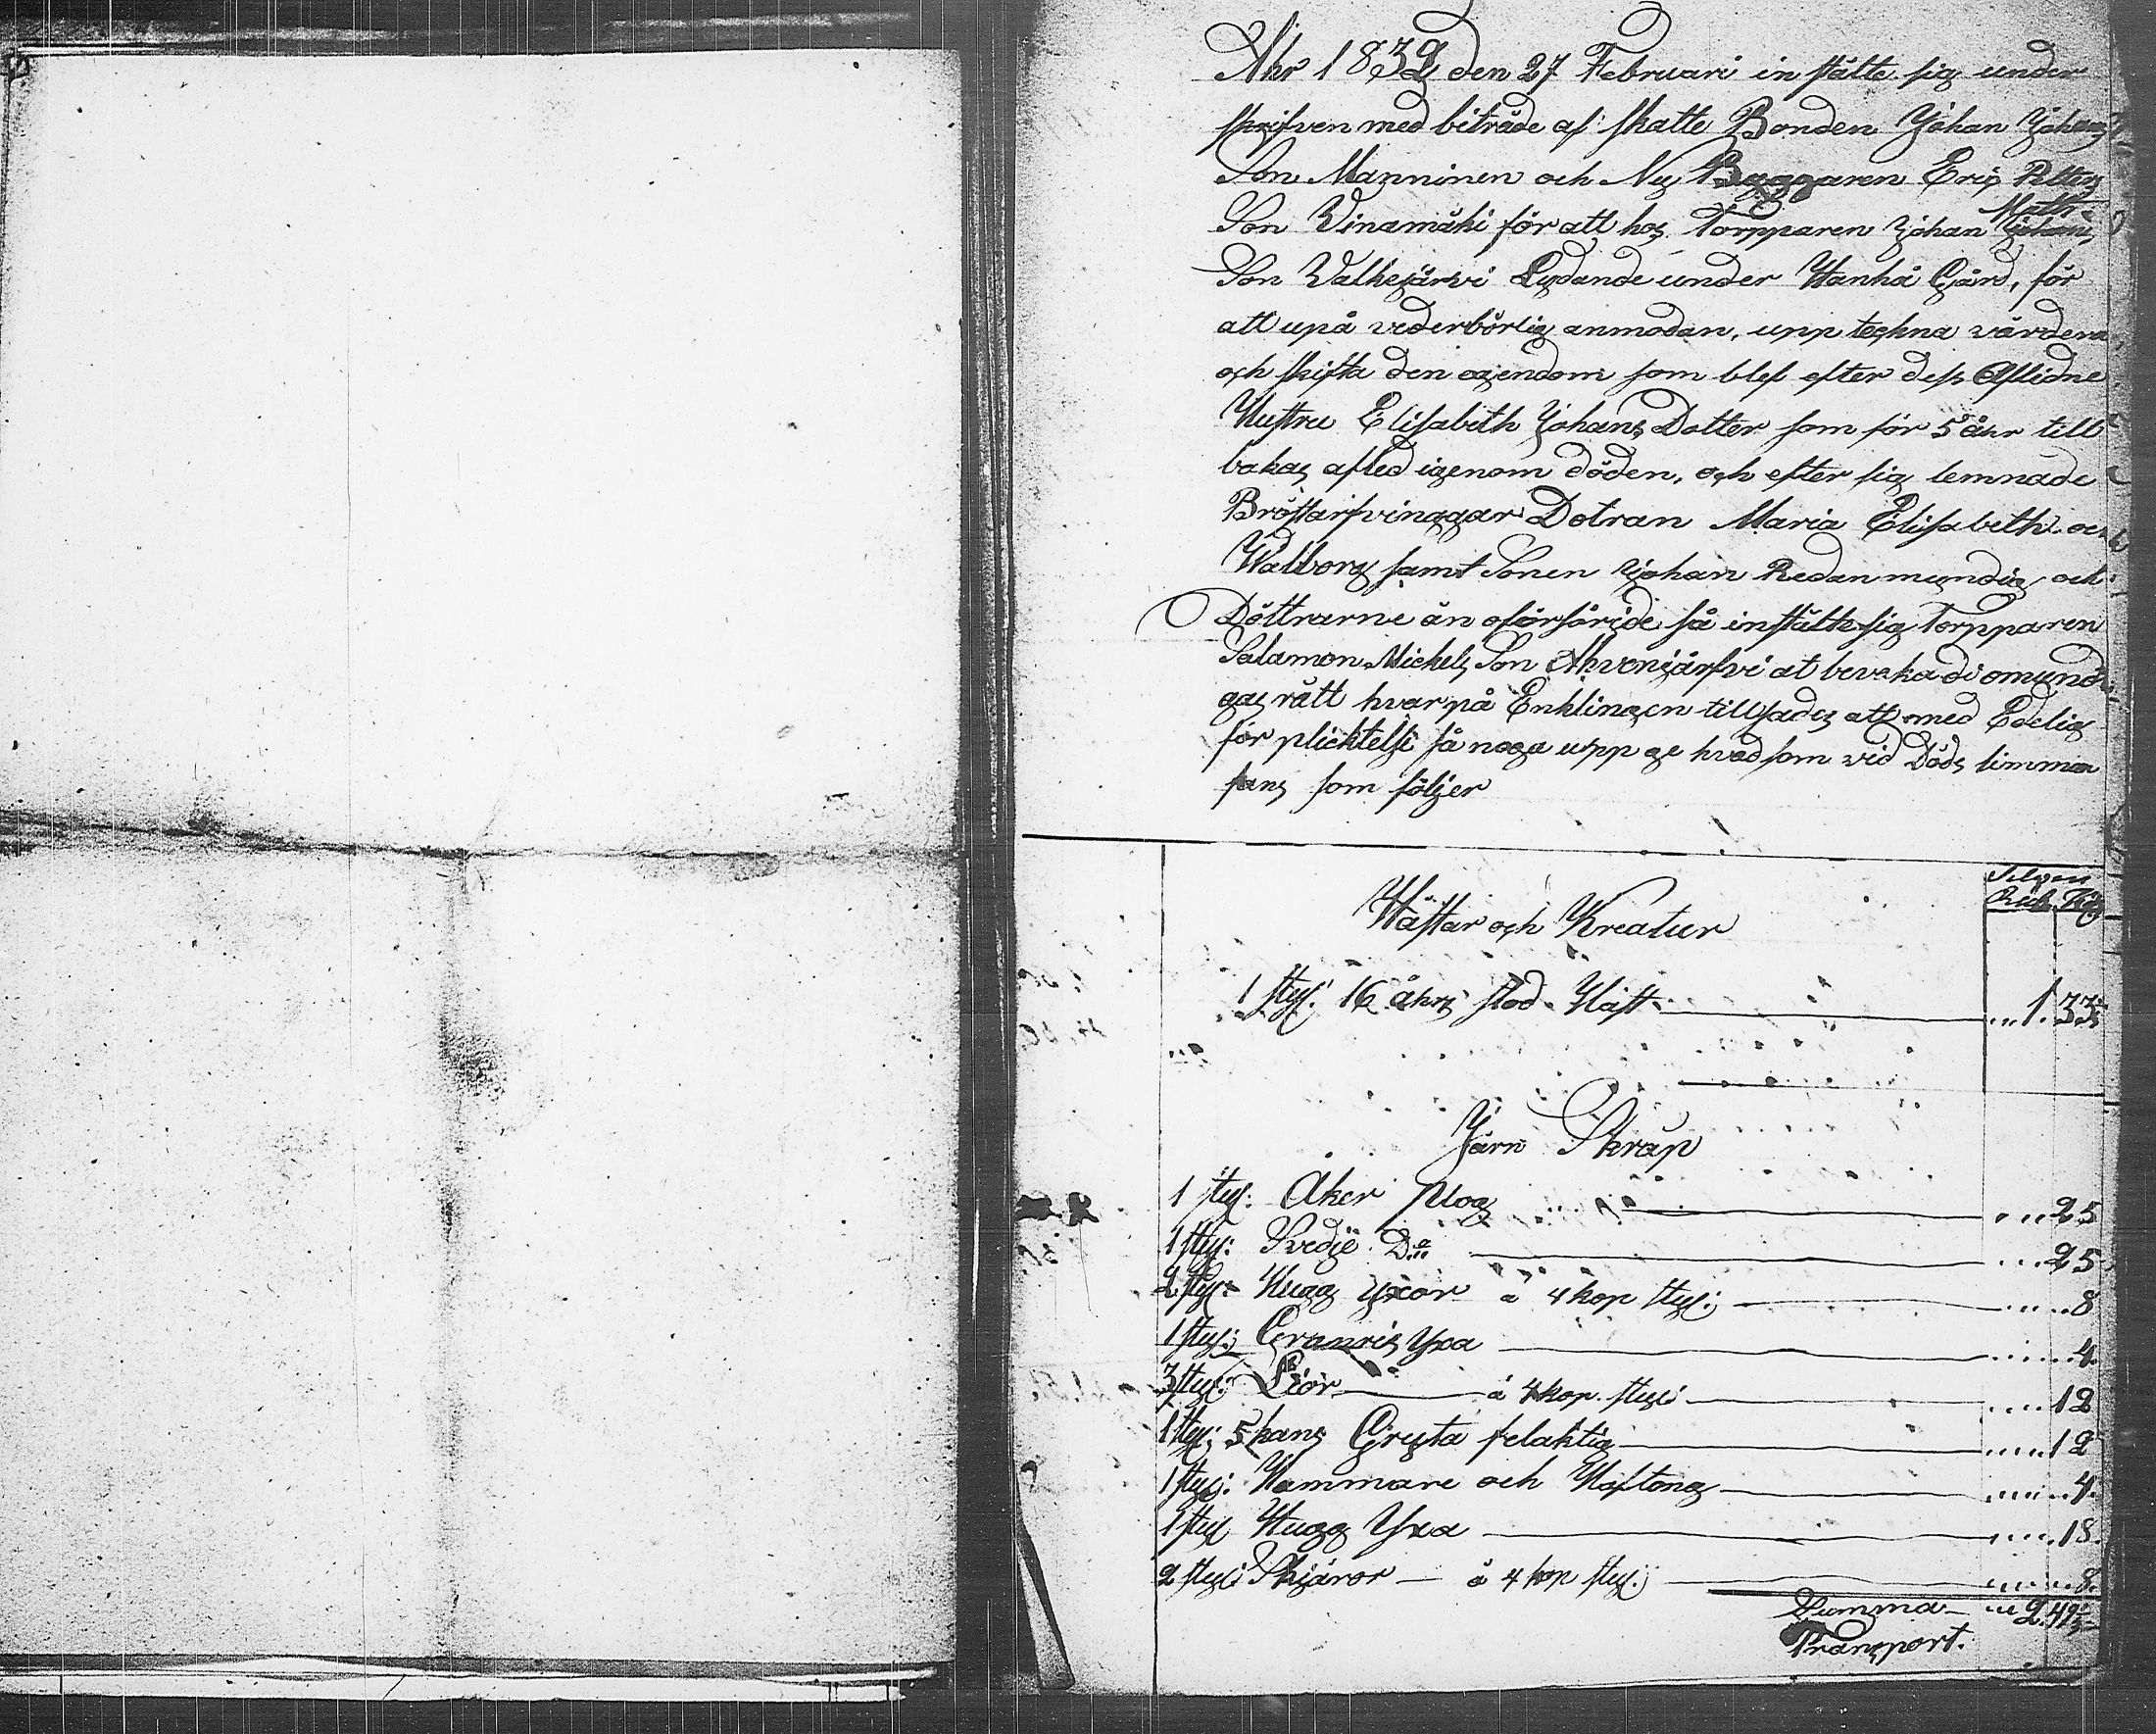 Åhr 1839 den 27 Februari in stälte sig under
skrifven med biträde af Skatte Bonden Johan Johans
Son Manninen och Ny Byggaren Eric Petters
Son Vinamäki för att hos Torpparen Johan Matts
Son Valkejärvi Lydande under Wanhá Gård, för
att upå vederbörlig anmodan, upp teckna värdera
och skifta den egendom som blef efter dess Aflidne
Hustru Elisabeth Johans Dotter som för 5 åhr till
bakas afled igenom döden, och efter sig lemnade
Bröstarfvinggar Dotran Maria Elisabeth oc
Walborg samt Sonen Johan Redan myndig och
Döttrarne än oförsörjde så instälte sig Torpparen
Salamon Michels Son Ahvenjärfvi at bevaka di omynd
gas rätt hvarpå Enklingen tillsades att med Edelig
för plicktelse så noga upp ge hvad som vid Döds timman
fans som följer
Silfver
Rub. Kop
Hästar och Kreatur
1 styk: 16 åhrs stod Häst 1. 33
Järn Skrap
1 styk: Åker Plog 25
1 styk: Svedje Do 25
2 styk: Hugg yxor à 4 kop styk: 8
1 styk: Granris Yxa 4.
3 styk: Liòr à 4 kop. styk: 12
1 styk: 5 kans Gryta felaktig 12
1 styk: Hammare och Håftong 4.
1 styk Hugg Yxa 18.
2 styk: Skjäror à 4 kop styk: 8.
Summa 2.49
Transport.